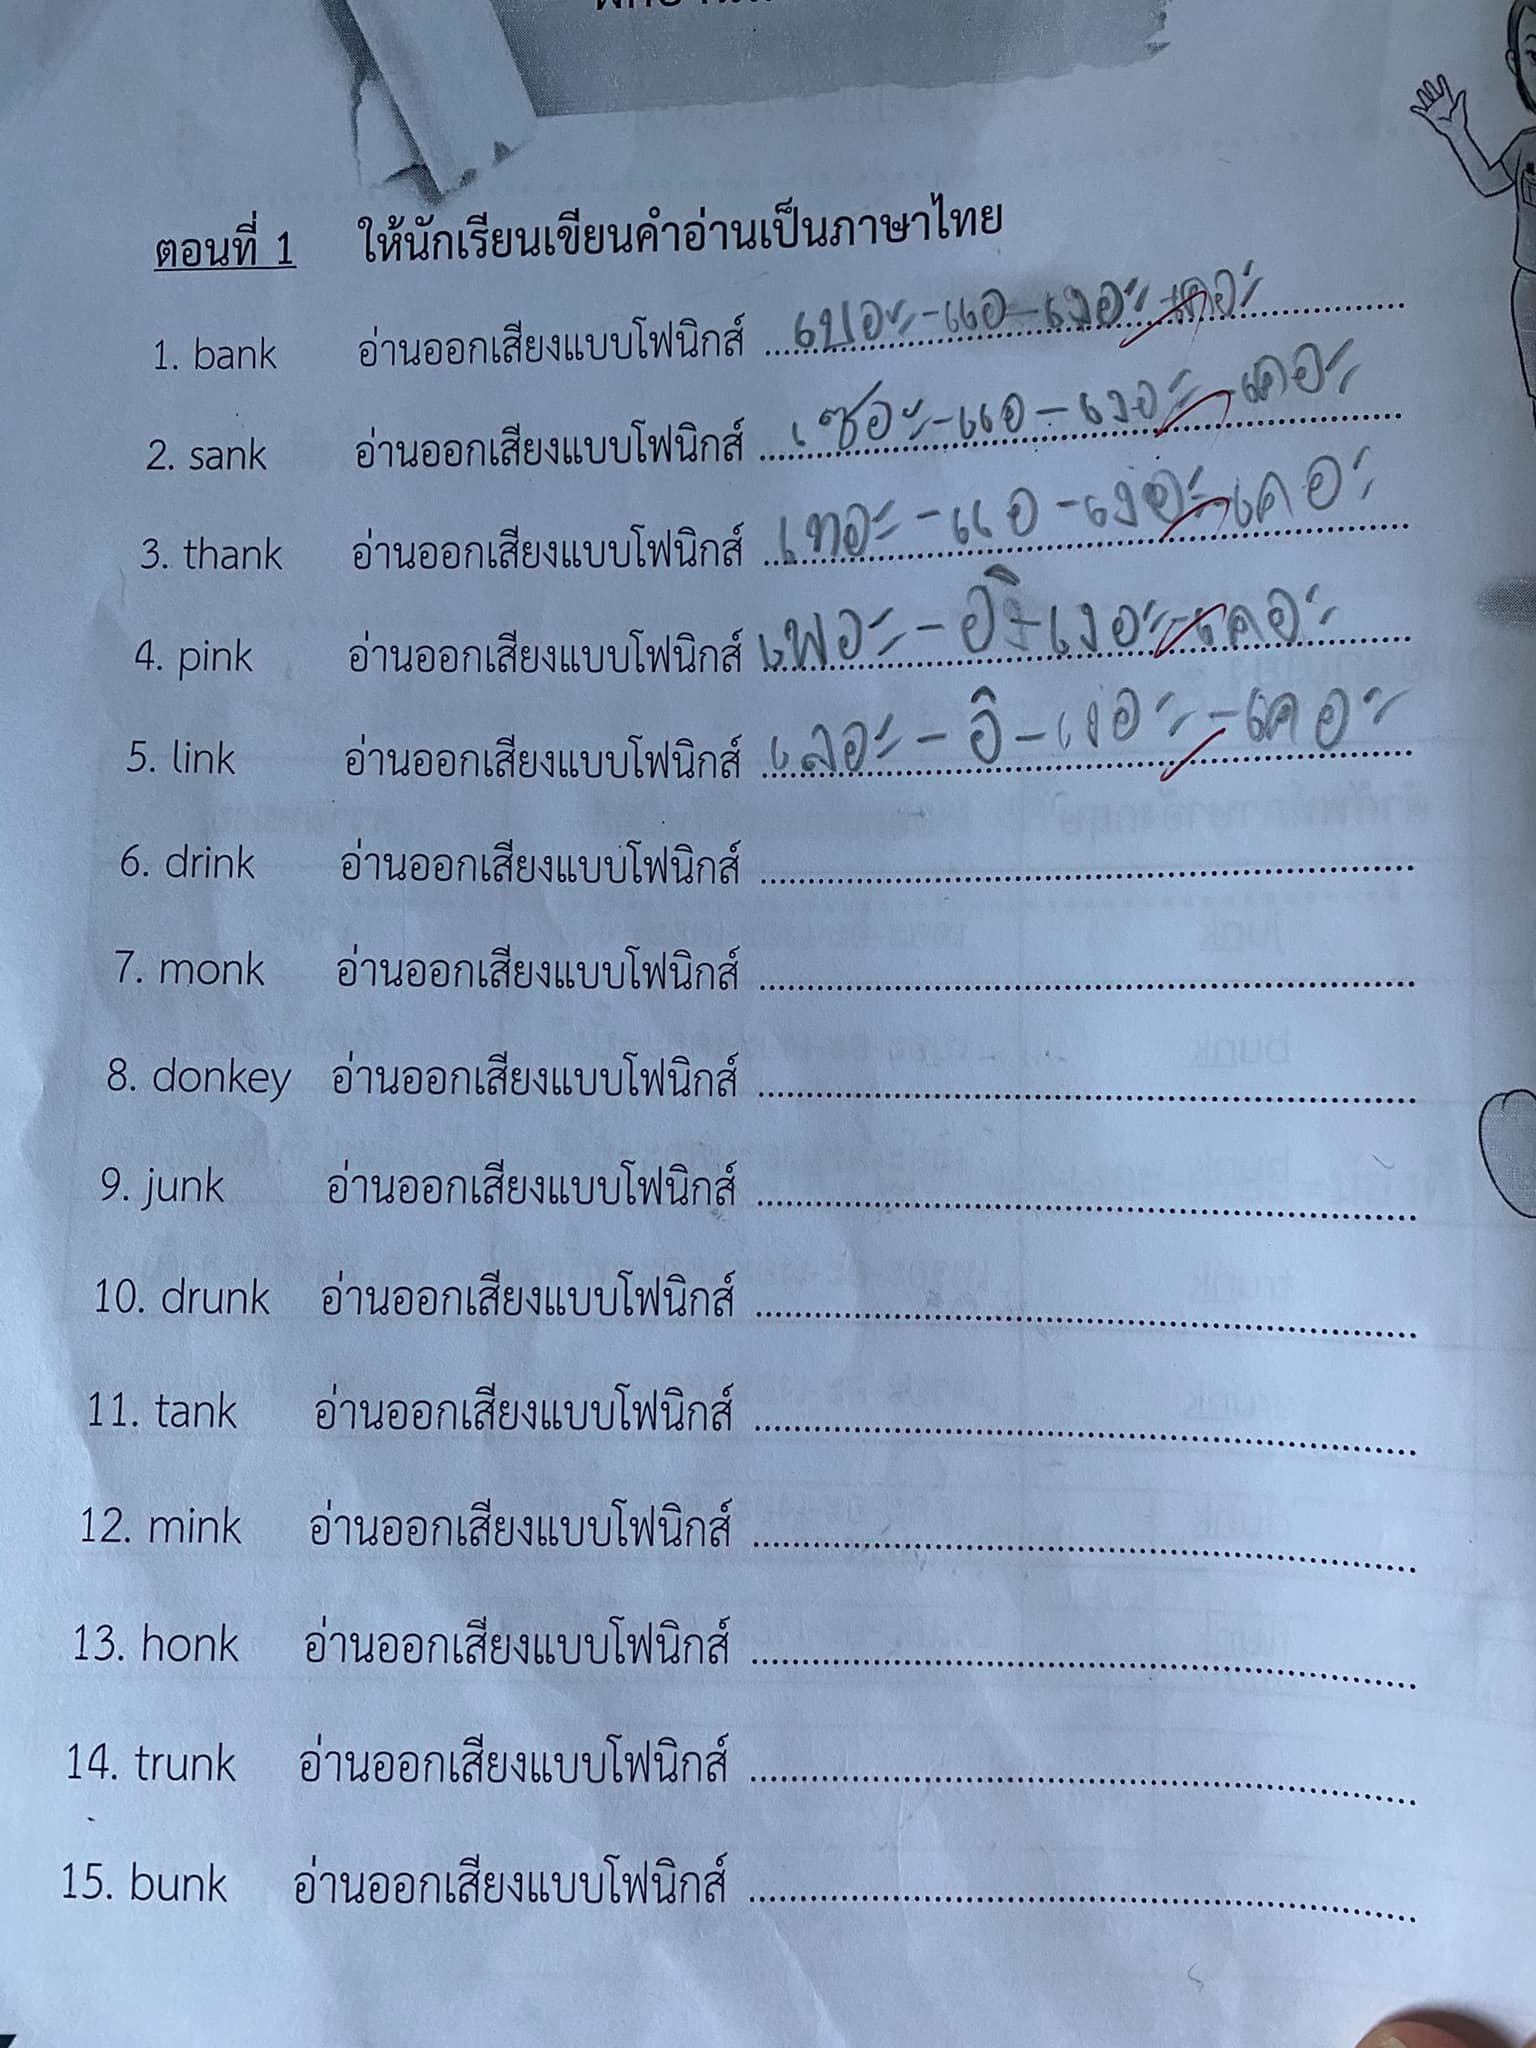 ตอนที่ 1 ให้นักเรียนเขียนคำอ่านเป็นภาษาไทย
1. bank อ่านออกเสียงแบบโฟนิกส์ เบอะ-แอ-เงอะ-เคอะ
2. sank อ่านออกเสียงแบบโฟนิกส์ เซอะ-แอ-เงอะ-เคอะ
3. thank อ่านออกเสียงแบบโฟนิกส์ เทอะ-แอ-เงอะ-เคอะ
4. pink อ่านออกเสียงแบบโฟนิกส์ เพอะ-อิ-เงอะ-เคอะ
5. link อ่านออกเสียงแบบโฟนิกส์ เลอะ-อิ-เงอะ-เคอะ
6. drink อ่านออกเสียงแบบโฟนิกส์
7. monk อ่านออกเสียงแบบโฟนิกส์
8. donkey อ่านออกเสียงแบบโฟนิกส์
9. junk อ่านออกเสียงแบบโฟนิกส์
10. drunk อ่านออกเสียงแบบโฟนิกส์
11. tank อ่านออกเสียงแบบโฟนิกส์
12. mink อ่านออกเสียงแบบโฟนิกส์
13. honk อ่านออกเสียงแบบโฟนิกส์
14. trunk อ่านออกเสียงแบบโฟนิกส์
15. bunk อ่านออกเสียงแบบโฟนิกส์